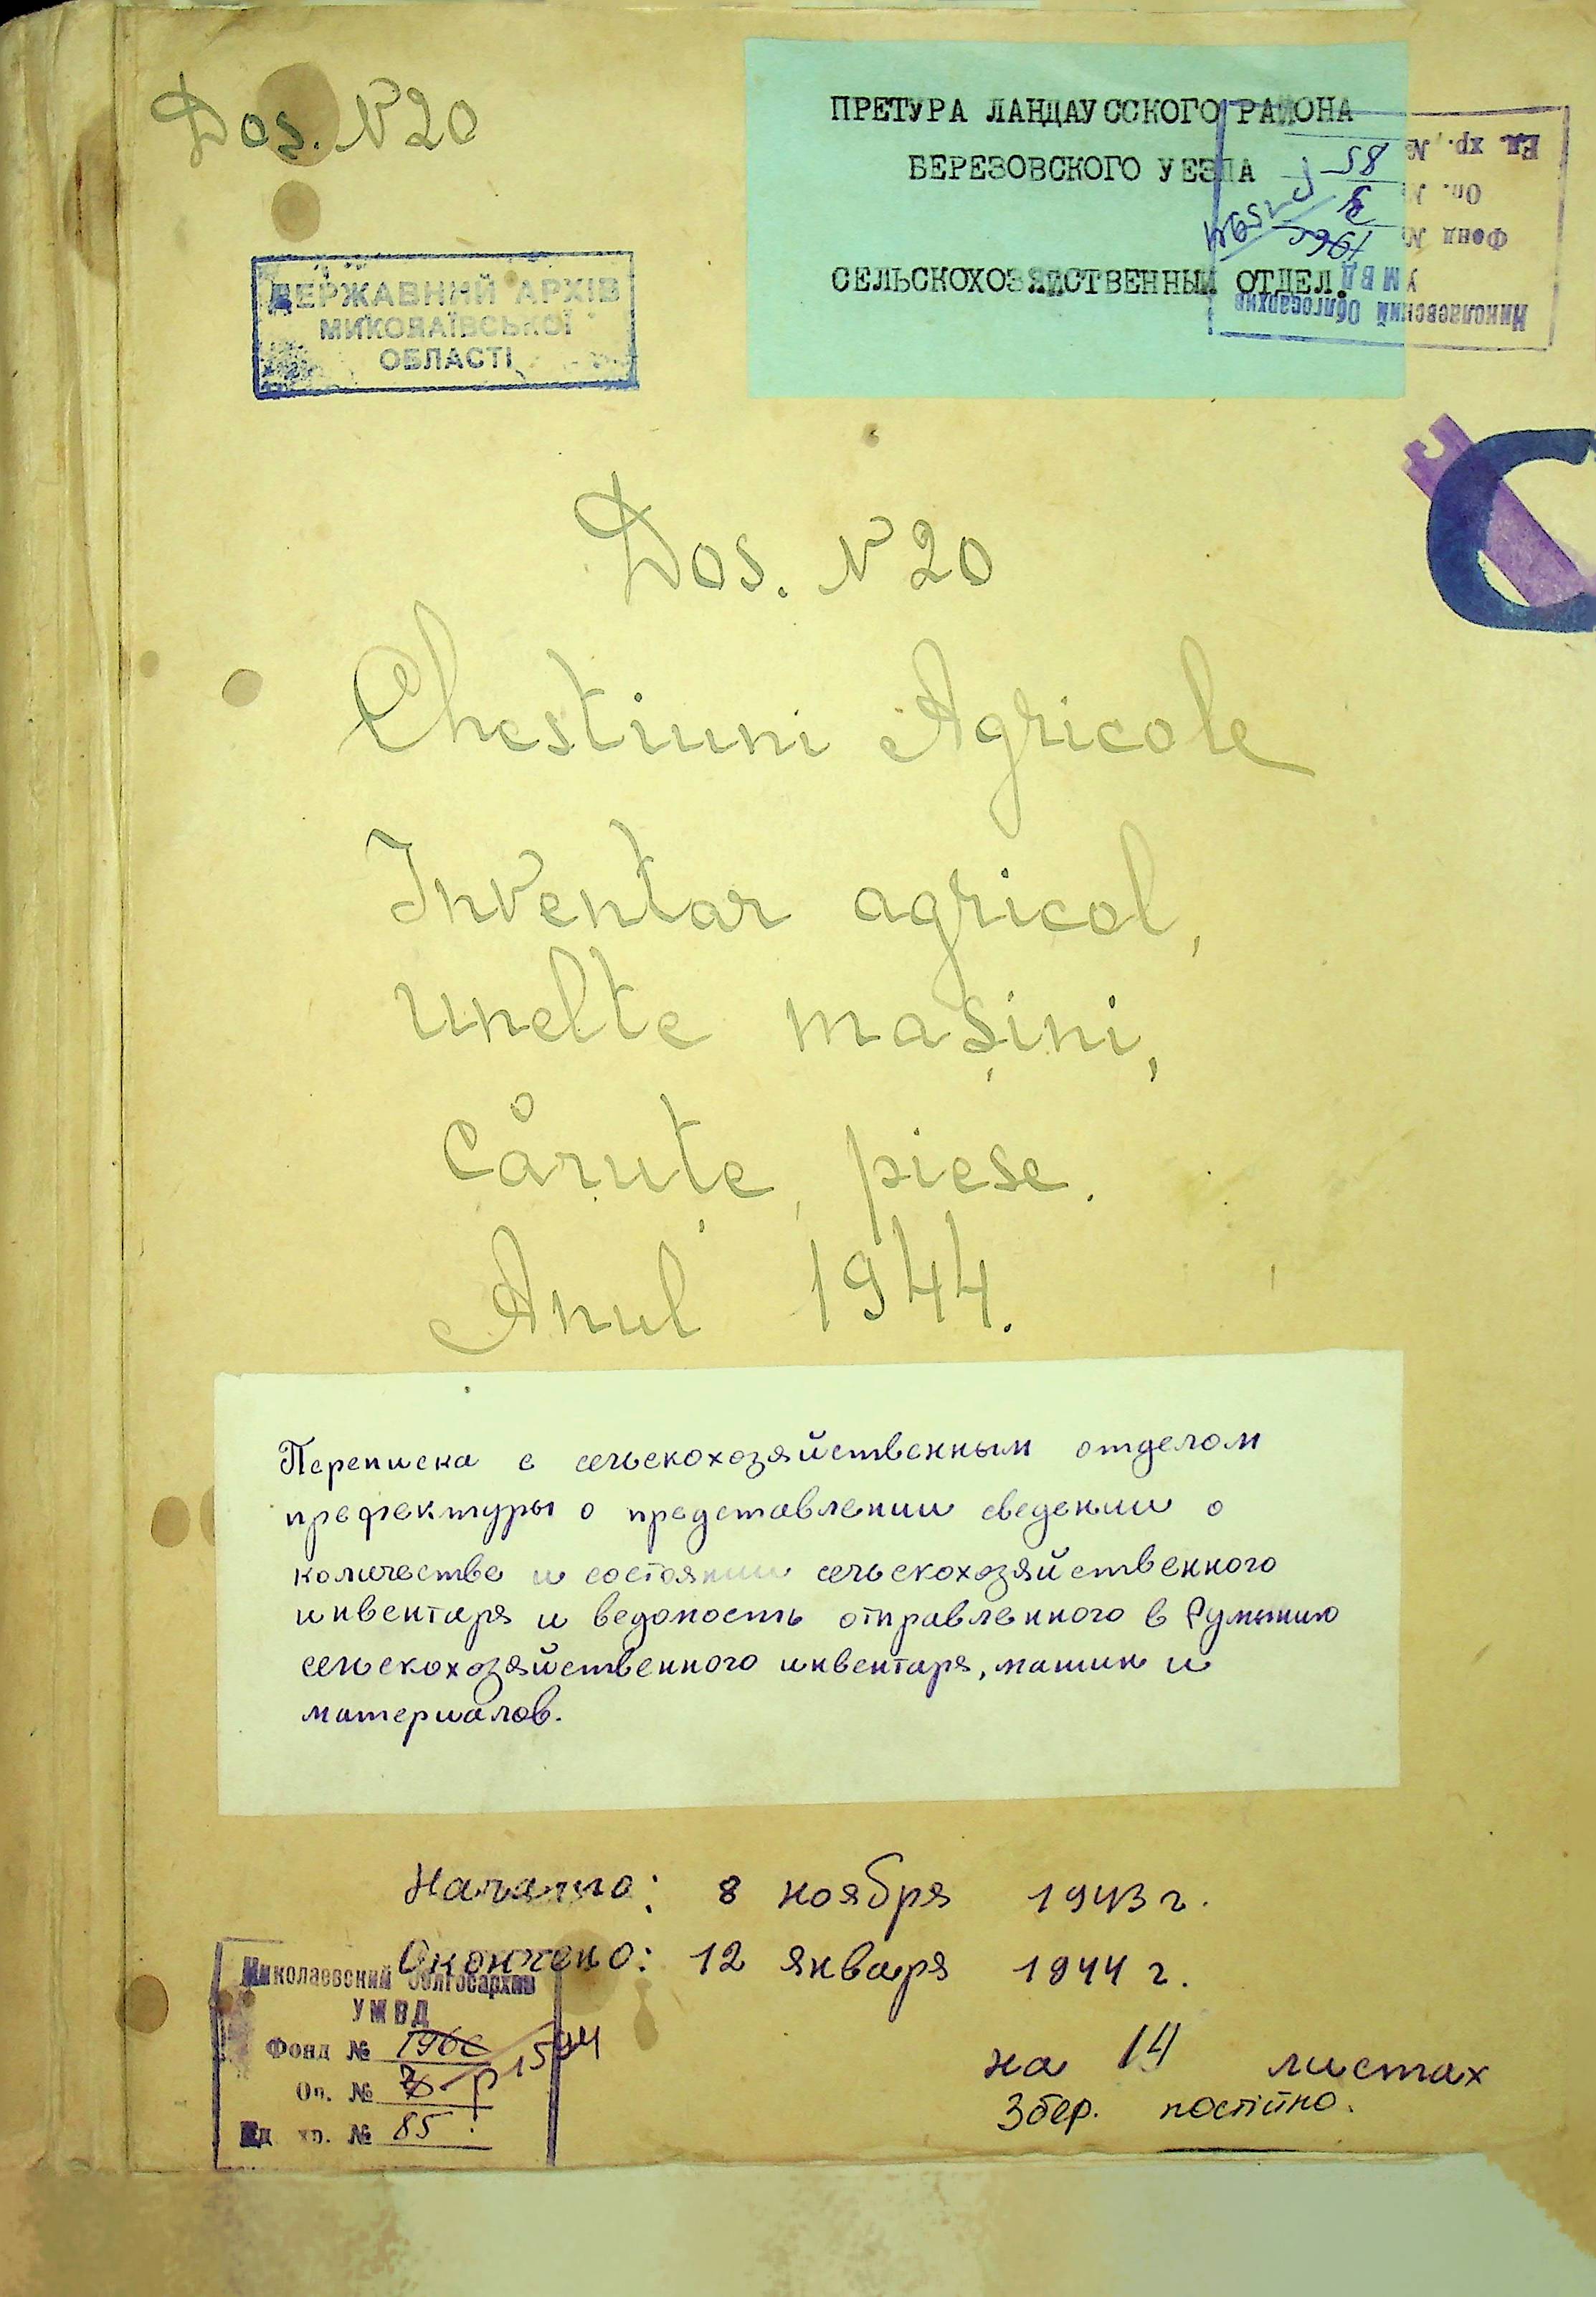 Dos. N 20
ПРЕТУРА ЛАНДАУССКОГО РАЙОНА
БЕРЕЗОВСКОГО УЕЗДА
СЕЛЬСКОХОЗЯЙСТВЕННЫЙ ОТДЕЛ.
Николаевский Облгосархив
УМВД
Фонд №
Оп. №
Ед. хр. № 85
ДЕРЖАВНИЙ АРХІВ
МИКОЛАЇВСЬКОЇ
ОБЛАСТІ
Dos. N 20
Chestiuni Agricole
Inventar agricol,
unelte mașini,
căruțe, piese.
Anul 1944.
Переписка с сельскохозяйственным отделом
префектуры о представлении сведении о
количестве и состоянии сельскохозяйственного
инвентаря и ведомость отправленного в Румынию
сельскохозяйственного инвентаря, машин и
материалов.
Начато: 8 ноября 1943 г.
Окончено: 12 января 1944 г.
Николаевский Облгосархив
УМВД
Фонд № р 1594
Оп. №
Ед. хр. № 85
на 14 листах
Збер. постійно.